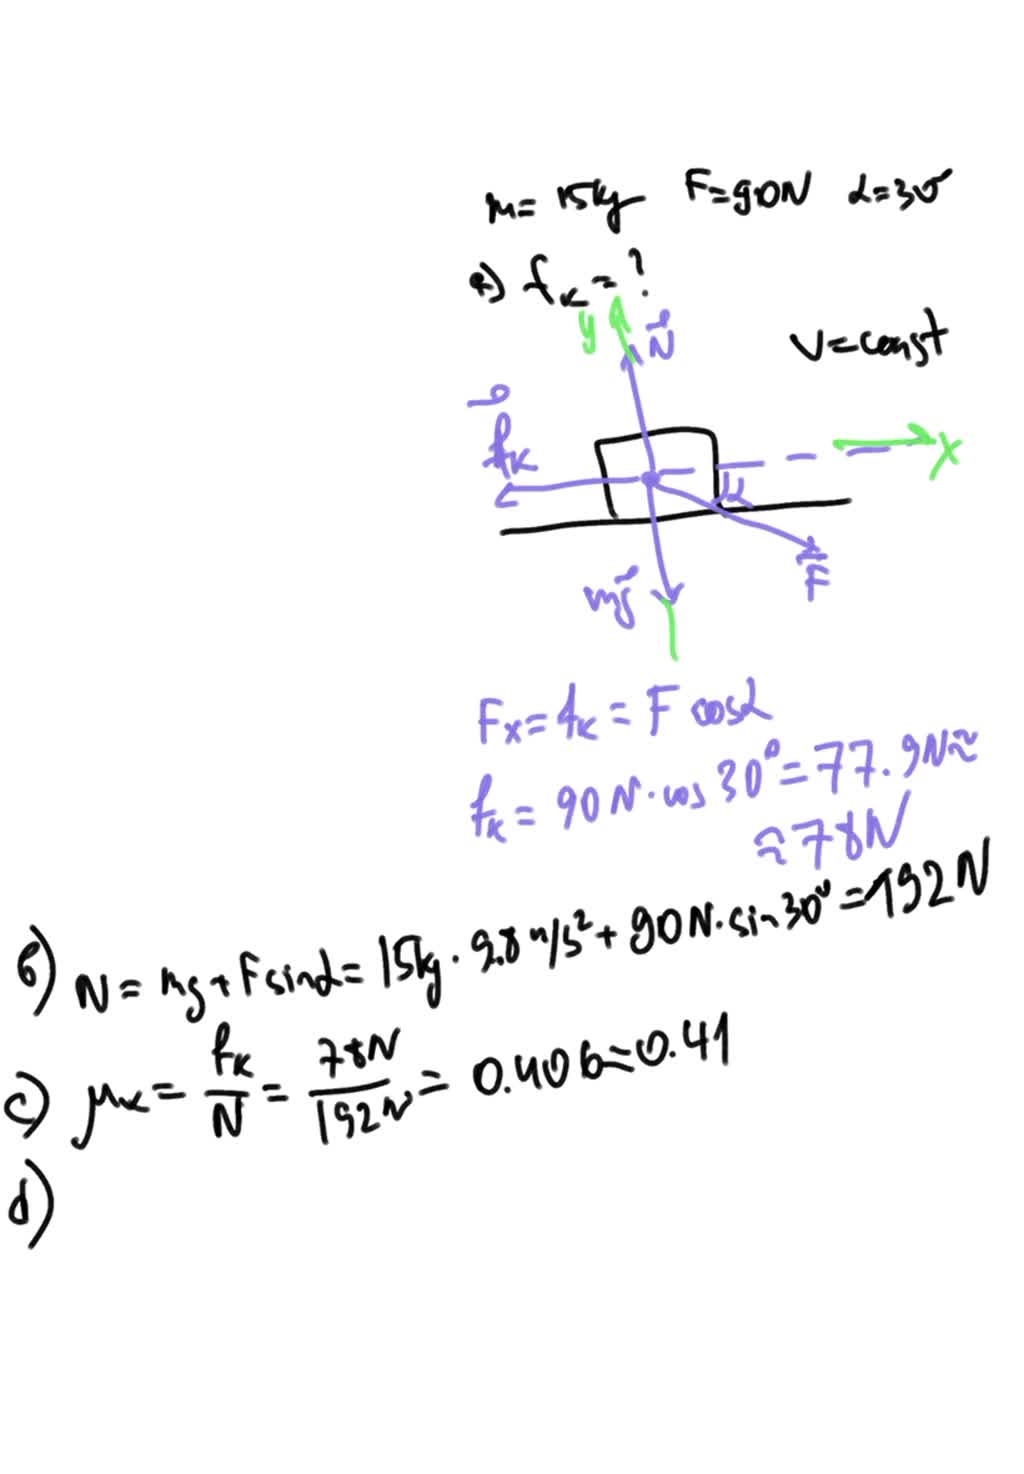 m= 15kg F=90N α=30°
a) fк=?
y N
V=const
fк
X
α
F
mg
Fx=fк = F cosα
fк = 90N·cos 30°=77.9N≈
≈78N
б) N = mg+Fsinα= 15kg · 9.8 m/s²+ 90N·sin30°=192N
c) μк= fк/N = 78N/192N = 0.406≈0.41
d)